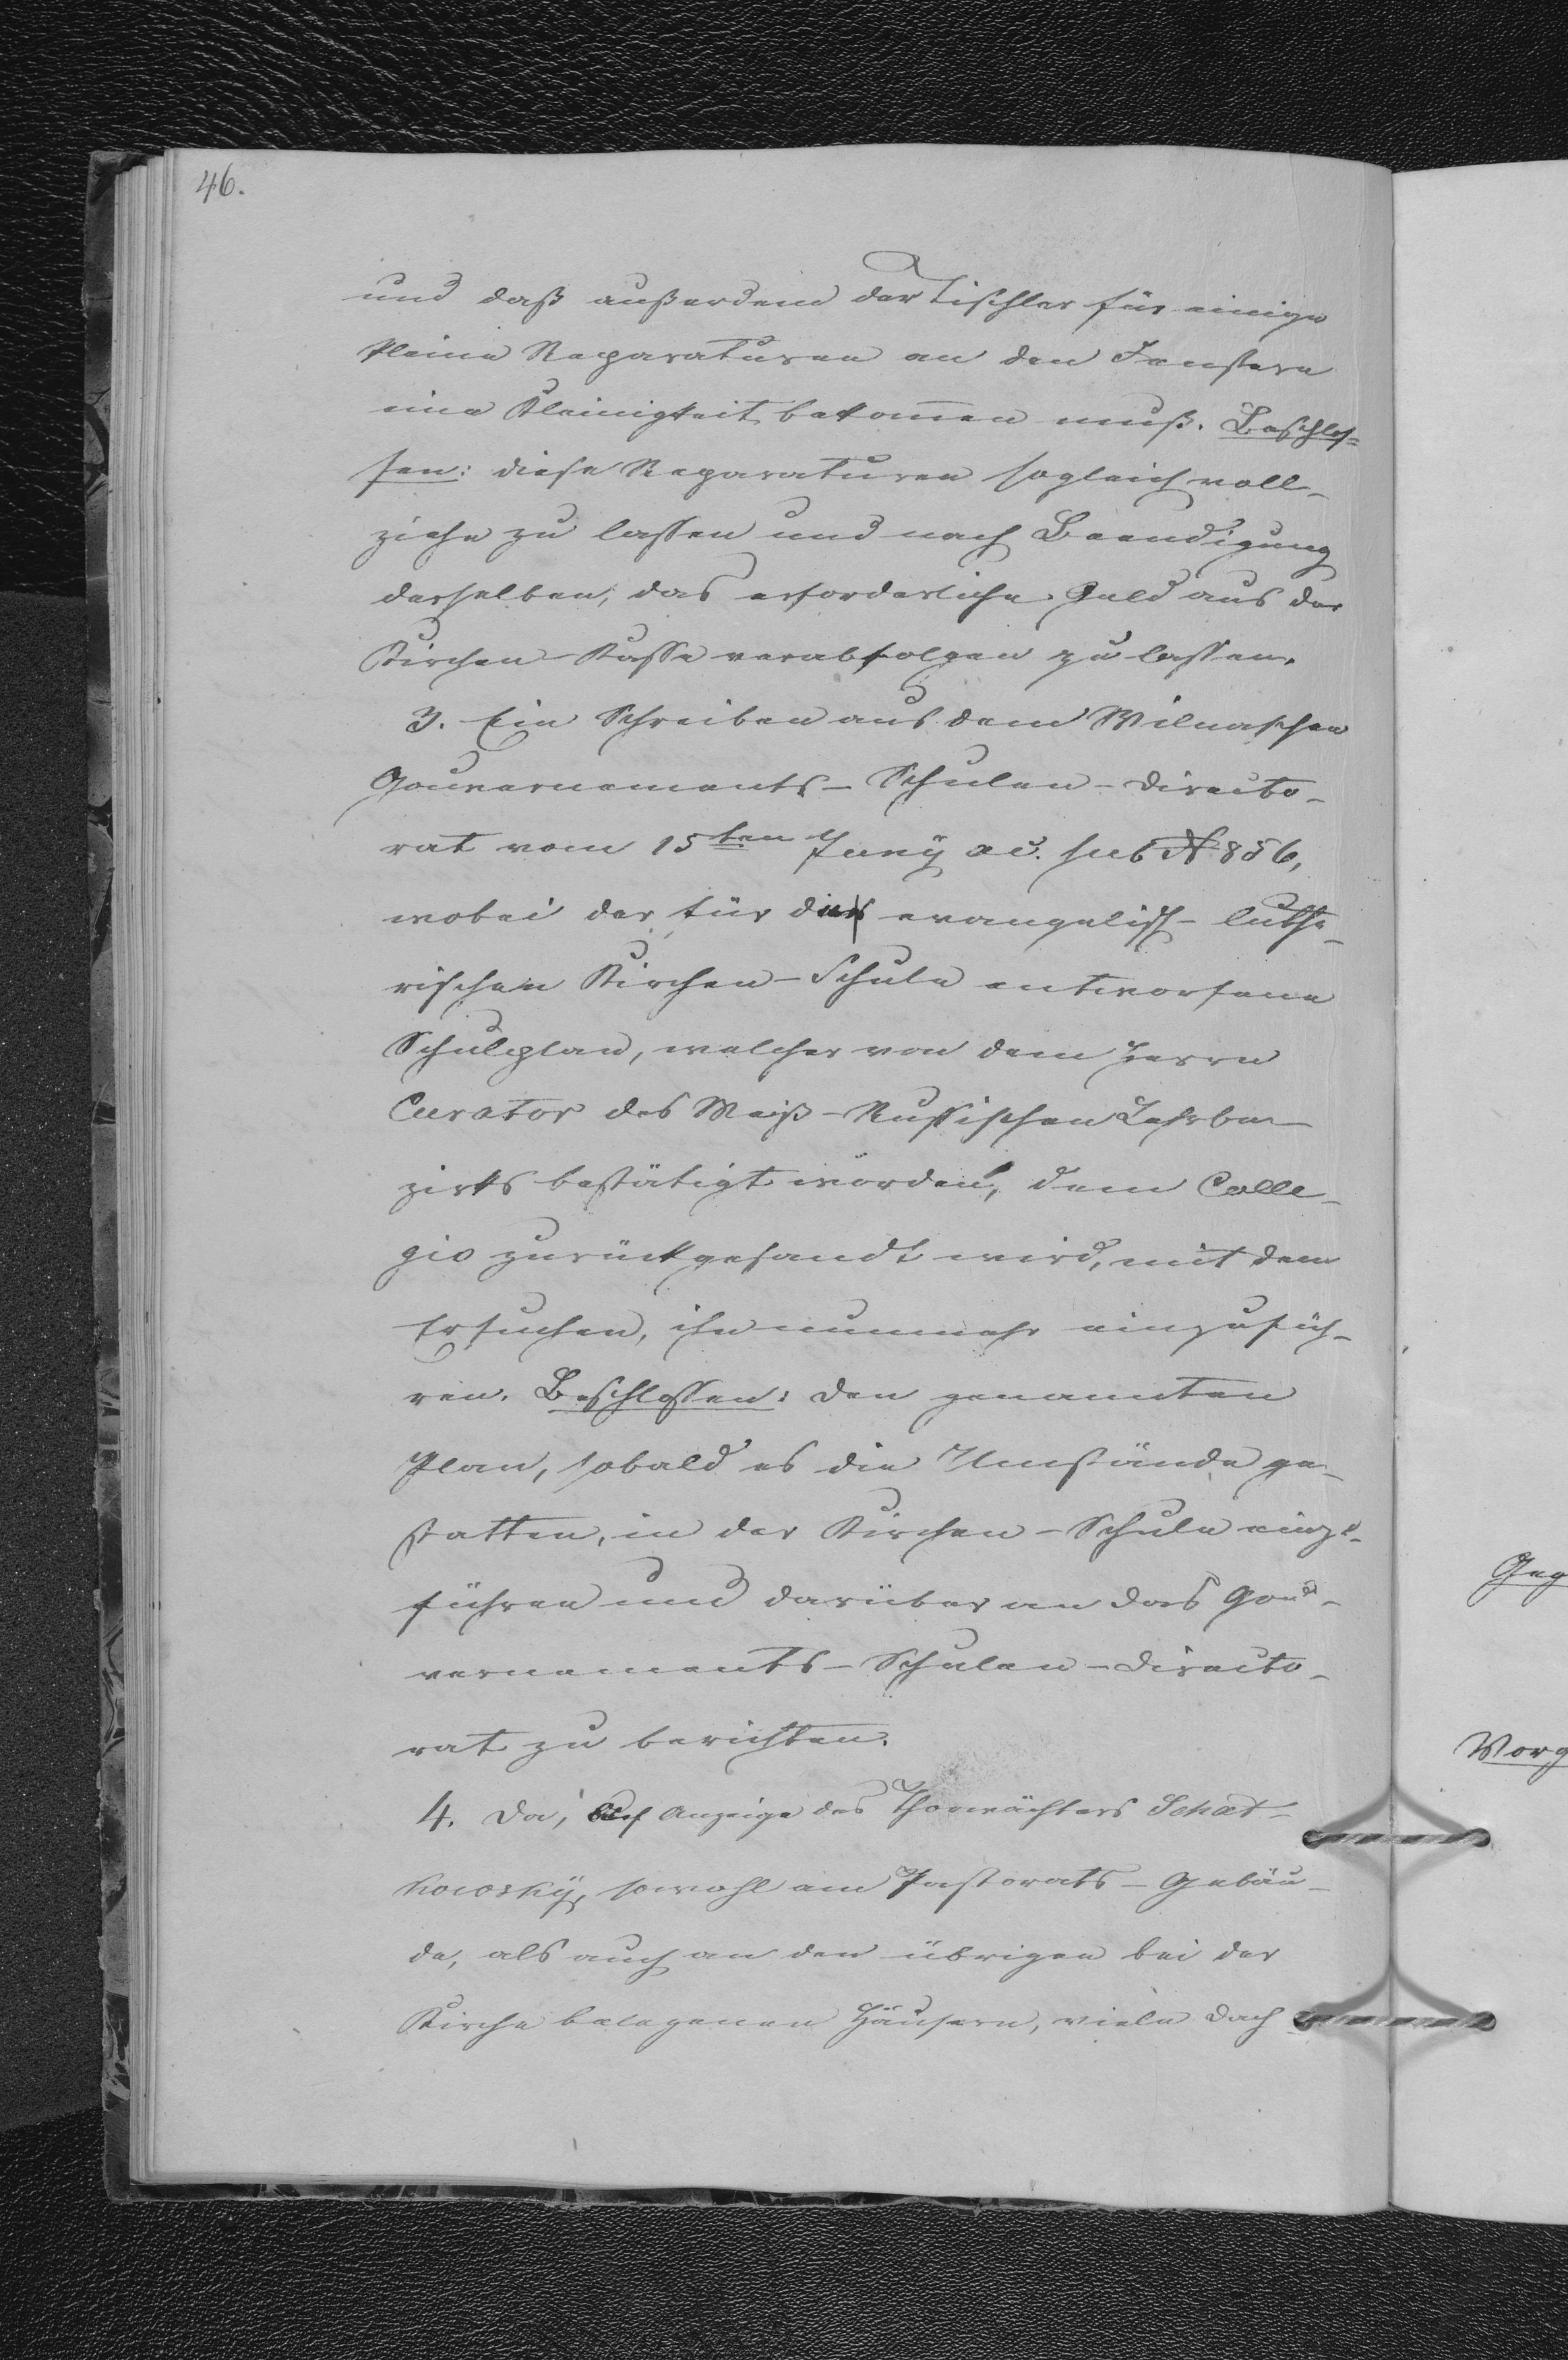 46.
und daß außerdem der Tischler für einige
kleine Reparaturen an den Fenstern
eine Kleinigkeit bekomen muß. Beschlos=
sen: diese Reparaturen sogleich voll-
ziehn zu lassen und nach Beendigung
derselben, das erforderliche Geld aus der
Kirchen-Kasse verabfolgen zu lassen.
3. Ein Schreiben aus dem Wilnaschen
Gouvernements-Schulen-Directo-
rat vom 15ten Juny a. c. sub № 856,
wobei der für die evangelisch-luthe-
rischen Kirchen-Schule entworfene
Schulplan, welcher von dem Herrn
Curator des Weiß-Russischen Lehrbe-
zirks bestätigt worden, dem Colle-
gio zurückgesandt wird, mit dem
Ersuchen, ihn nunmehr einzufüh-
ren. Beschlossen: den genannten
Plan, sobald es die Umstände ge-
statten, in der Kirchen-Schule einzu-
führen und darüber an das Gou-
vernements-Schulen-Directo-
rat zu berichten.
4. Da, auf Anzeige des Thorwächters Schat-
kowsky, sowohl am Pastorats-Gebäu-
de, als auch an den übrigen bei der
Kirche belegenen Häusern, viele Dach
Geg
Worg